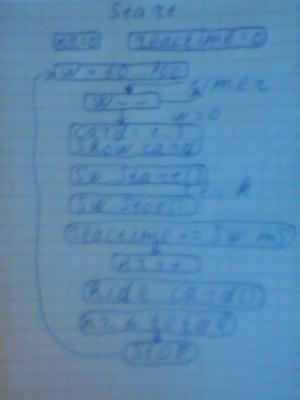 Start
nr=0 reactime=0
W = 50..100
timer
W--
w=0
card = 1..
Show card
Sw.Start()
Sw.Stop()
reactime += Sw.mS
nr++
hide card()
nr < total
Stop